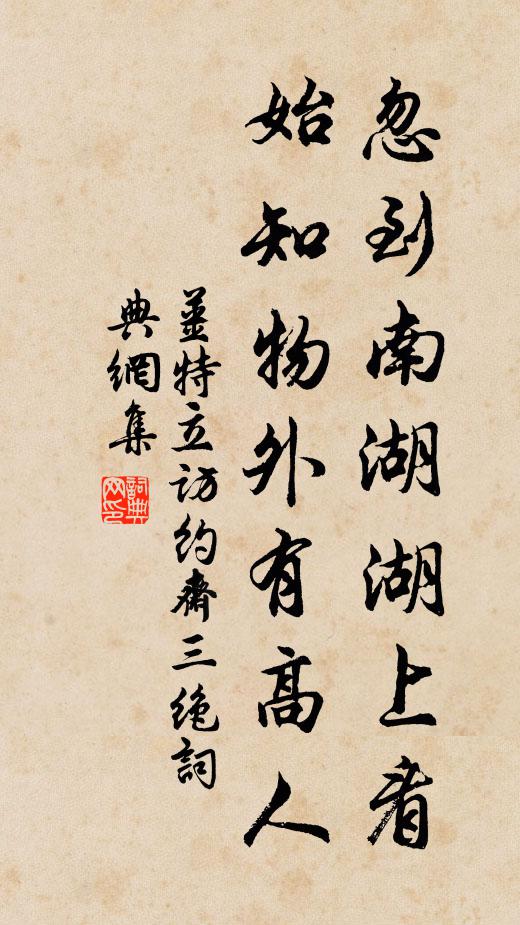 忽到南湖湖上看
始知物外有高人
姜特立访约斋三绝詞
典網集
詞典网印